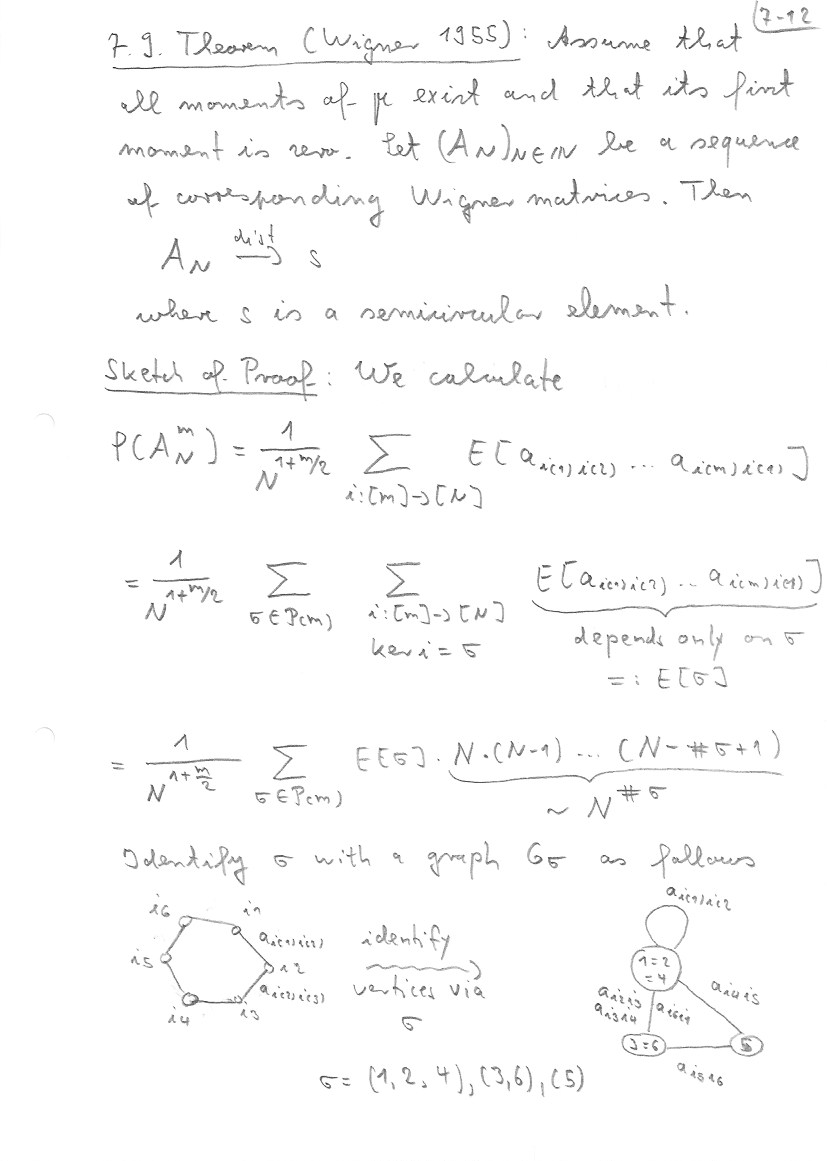 7-12
7.9. Theorem (Wigner 1955): Assume that
all moments of μ exist and that its first
moment is zero. Let (A_N)_{N∈ℕ} be a sequence
of corresponding Wigner matrices. Then
A_N \xrightarrow{dist} s
where s is a semicircular element.
Sketch of Proof: We calculate
φ(A_N^m) = \frac{1}{N^{1+m/2}} \sum_{i:[m]→[N]} E[a_{i(1)i(2)} ... a_{i(m)i(1)}]
= \frac{1}{N^{1+m/2}} \sum_{σ∈P(m)} \sum_{i:[m]→[N], ker i = σ} E[a_{i(1)i(2)} ... a_{i(m)i(1)}]
depends only on σ
=: E[σ]
= \frac{1}{N^{1+\frac{m}{2}}} \sum_{σ∈P(m)} E[σ] · N·(N-1) ... (N-#σ+1)
~ N^{#σ}
Identify σ with a graph G_σ as follows
i6 i1 a_{i(1)i(2)} i2 a_{i(2)i(3)} i3 i4 i5
identify
vertices via
σ
a_{i(1)i(2)}
1=2
=4
a_{i2i3} a_{i3i4} a_{i6i1} a_{i4i5}
3=6 5
a_{i5i6}
σ = (1,2,4),(3,6),(5)